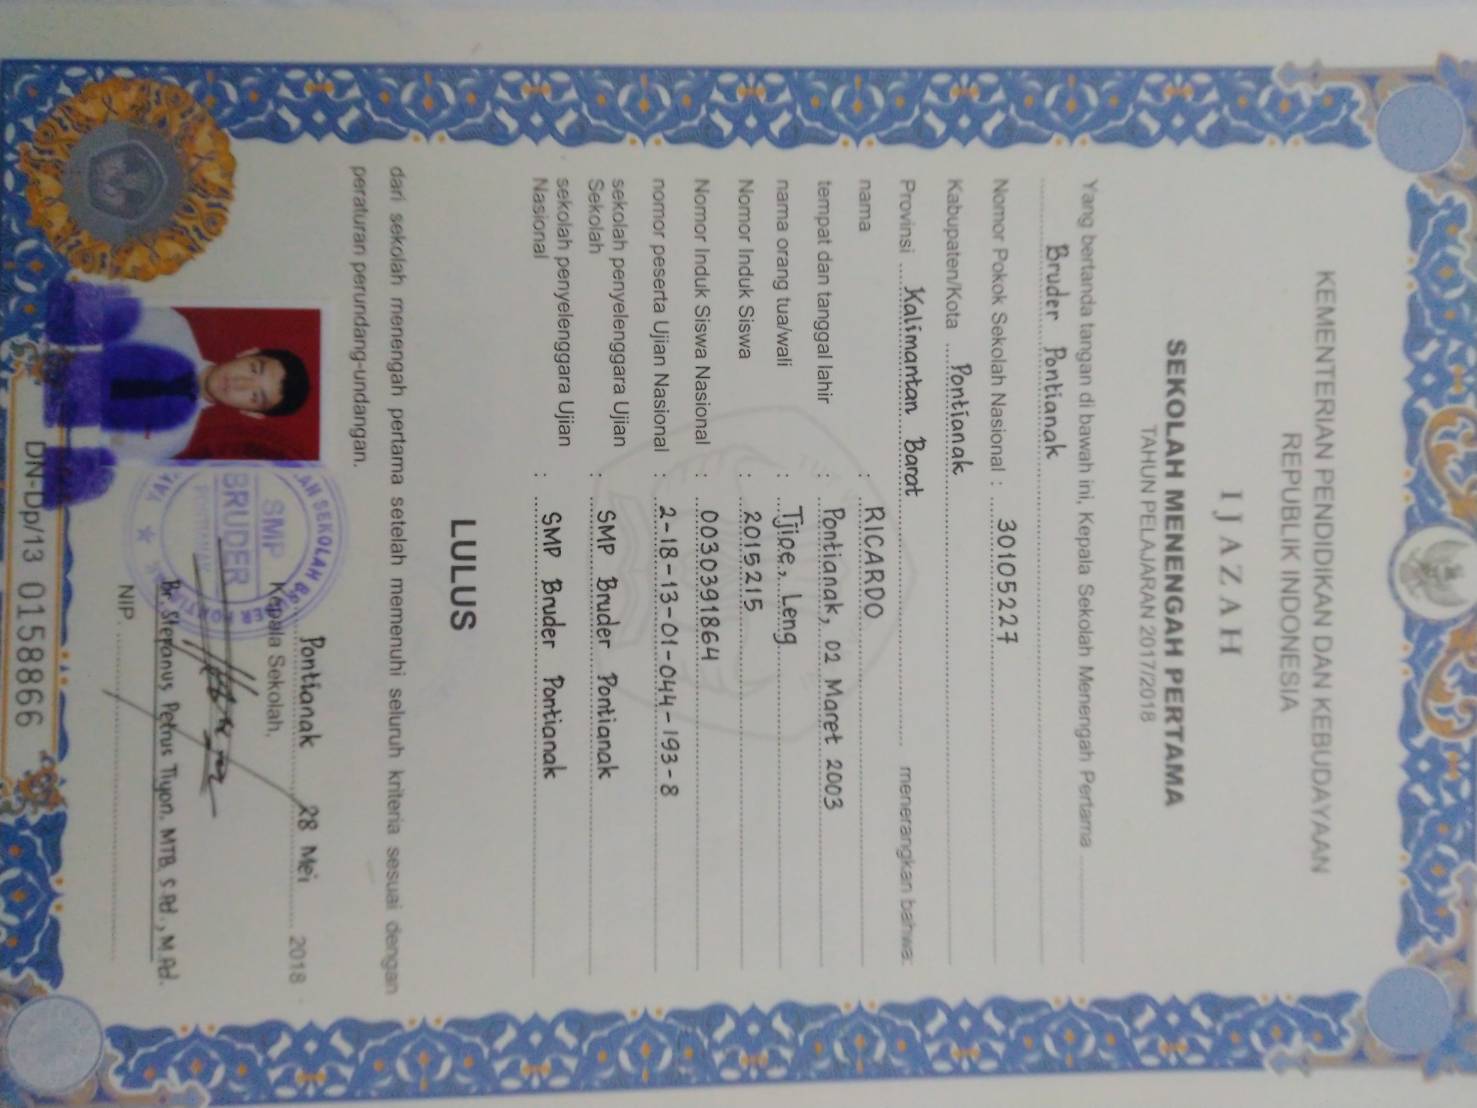 KEMENTERIAN PENDIDIKAN DAN KEBUDAYAAN
REPUBLIK INDONESIA
IJAZAH
SEKOLAH MENENGAH PERTAMA
TAHUN PELAJARAN 2017/2018
Yang bertanda tangan di bawah ini, Kepala Sekolah Menengah Pertama
Bruder Pontianak
Nomor Pokok Sekolah Nasional : 30105227
Kabupaten/Kota Pontianak
Provinsi Kalimantan Barat menerangkan bahwa:
nama : RICARDO
tempat dan tanggal lahir : Pontianak, 02 Maret 2003
nama orang tua/wali : Tjioe, Leng
Nomor Induk Siswa : 2015215
Nomor Induk Siswa Nasional : 0030391864
nomor peserta Ujian Nasional : 2-18-13-01-044-193-8
sekolah penyelenggara Ujian Sekolah : SMP Bruder Pontianak
sekolah penyelenggara Ujian Nasional : SMP Bruder Pontianak
LULUS
dari sekolah menengah pertama setelah memenuhi seluruh kriteria sesuai dengan
peraturan perundang-undangan.
Pontianak 28 Mei 2018
Kepala Sekolah,
SMP
BRUDER
Br. Stepanus Petrus Tiyon, MTB, S.Pd., M.Pd.
NIP.
DN-Dp/13 0158866